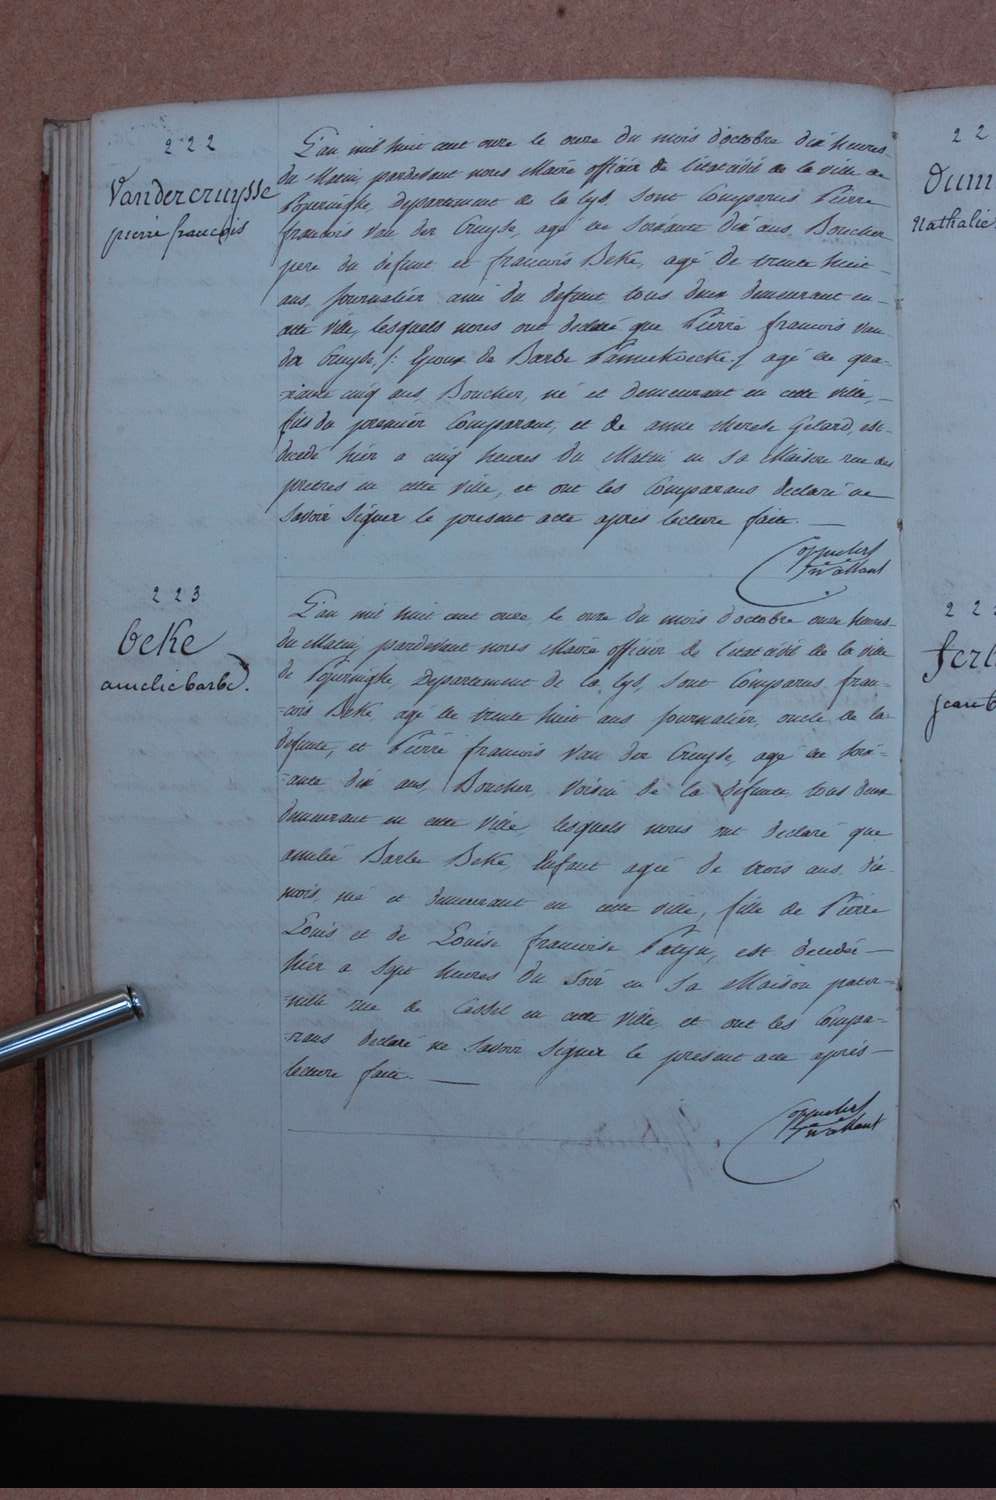 222
Vandercruysse
pierre françois
L'an mil huit cent onze le onze du mois d'octobre dix heures
du Matin, pardevant nous Maire officier de l'état civil de la ville de
Poperinghe, Departement de la Lys, sont Comparus Pierre
francois Van der Cruysse, agé de soixante dix ans, Boucher
pere du defunt et francois Beke, agé de trente huit
ans, journalier ami du defunt, tous deux demeurant en
cette ville, lesquels nous ont declaré que Pierre francois Van
der Cruysse /: Epoux de Barbe :/ agé de qua-
-rante cinq ans, Boucher, né et demeurant en cette ville,
fils du premier Comparant, et de anne therese Gelard, est
decedé hier a cinq heures du Matin en sa Maison rue des
pretres en cette ville, et ont les Comparans declaré ne
savoir signer le present acte apres lecture faite.
223
beke
amelie barbe.
L'an mil huit cent onze, le onze du mois d'octobre onze heures
du Matin, pardevant nous Maire officier de l'état civil de la ville
de Poperinghe, Departement de la Lys, sont Comparus fran-
-cois Beke, agé de trente huit ans, journalier, oncle de la
defunte, et Pierre francois Van der Cruysse, agé de soix-
-ante dix ans, Boucher, Voisin de la defunte, tous deux
demeurant en cette ville, lesquels nous ont declaré que
amelie Barbe Beke, Enfant agée de trois ans, dix
mois, née et demeurant en cette ville, fille de Pierre
Louis et de Louise francoise, est decedée
hier a sept heures du soir en sa Maison pater-
-nelle rue de Cassel en cette ville, et ont les Compa-
-rans declaré ne savoir signer le present acte après
lecture faite.
22
Nathalie
22